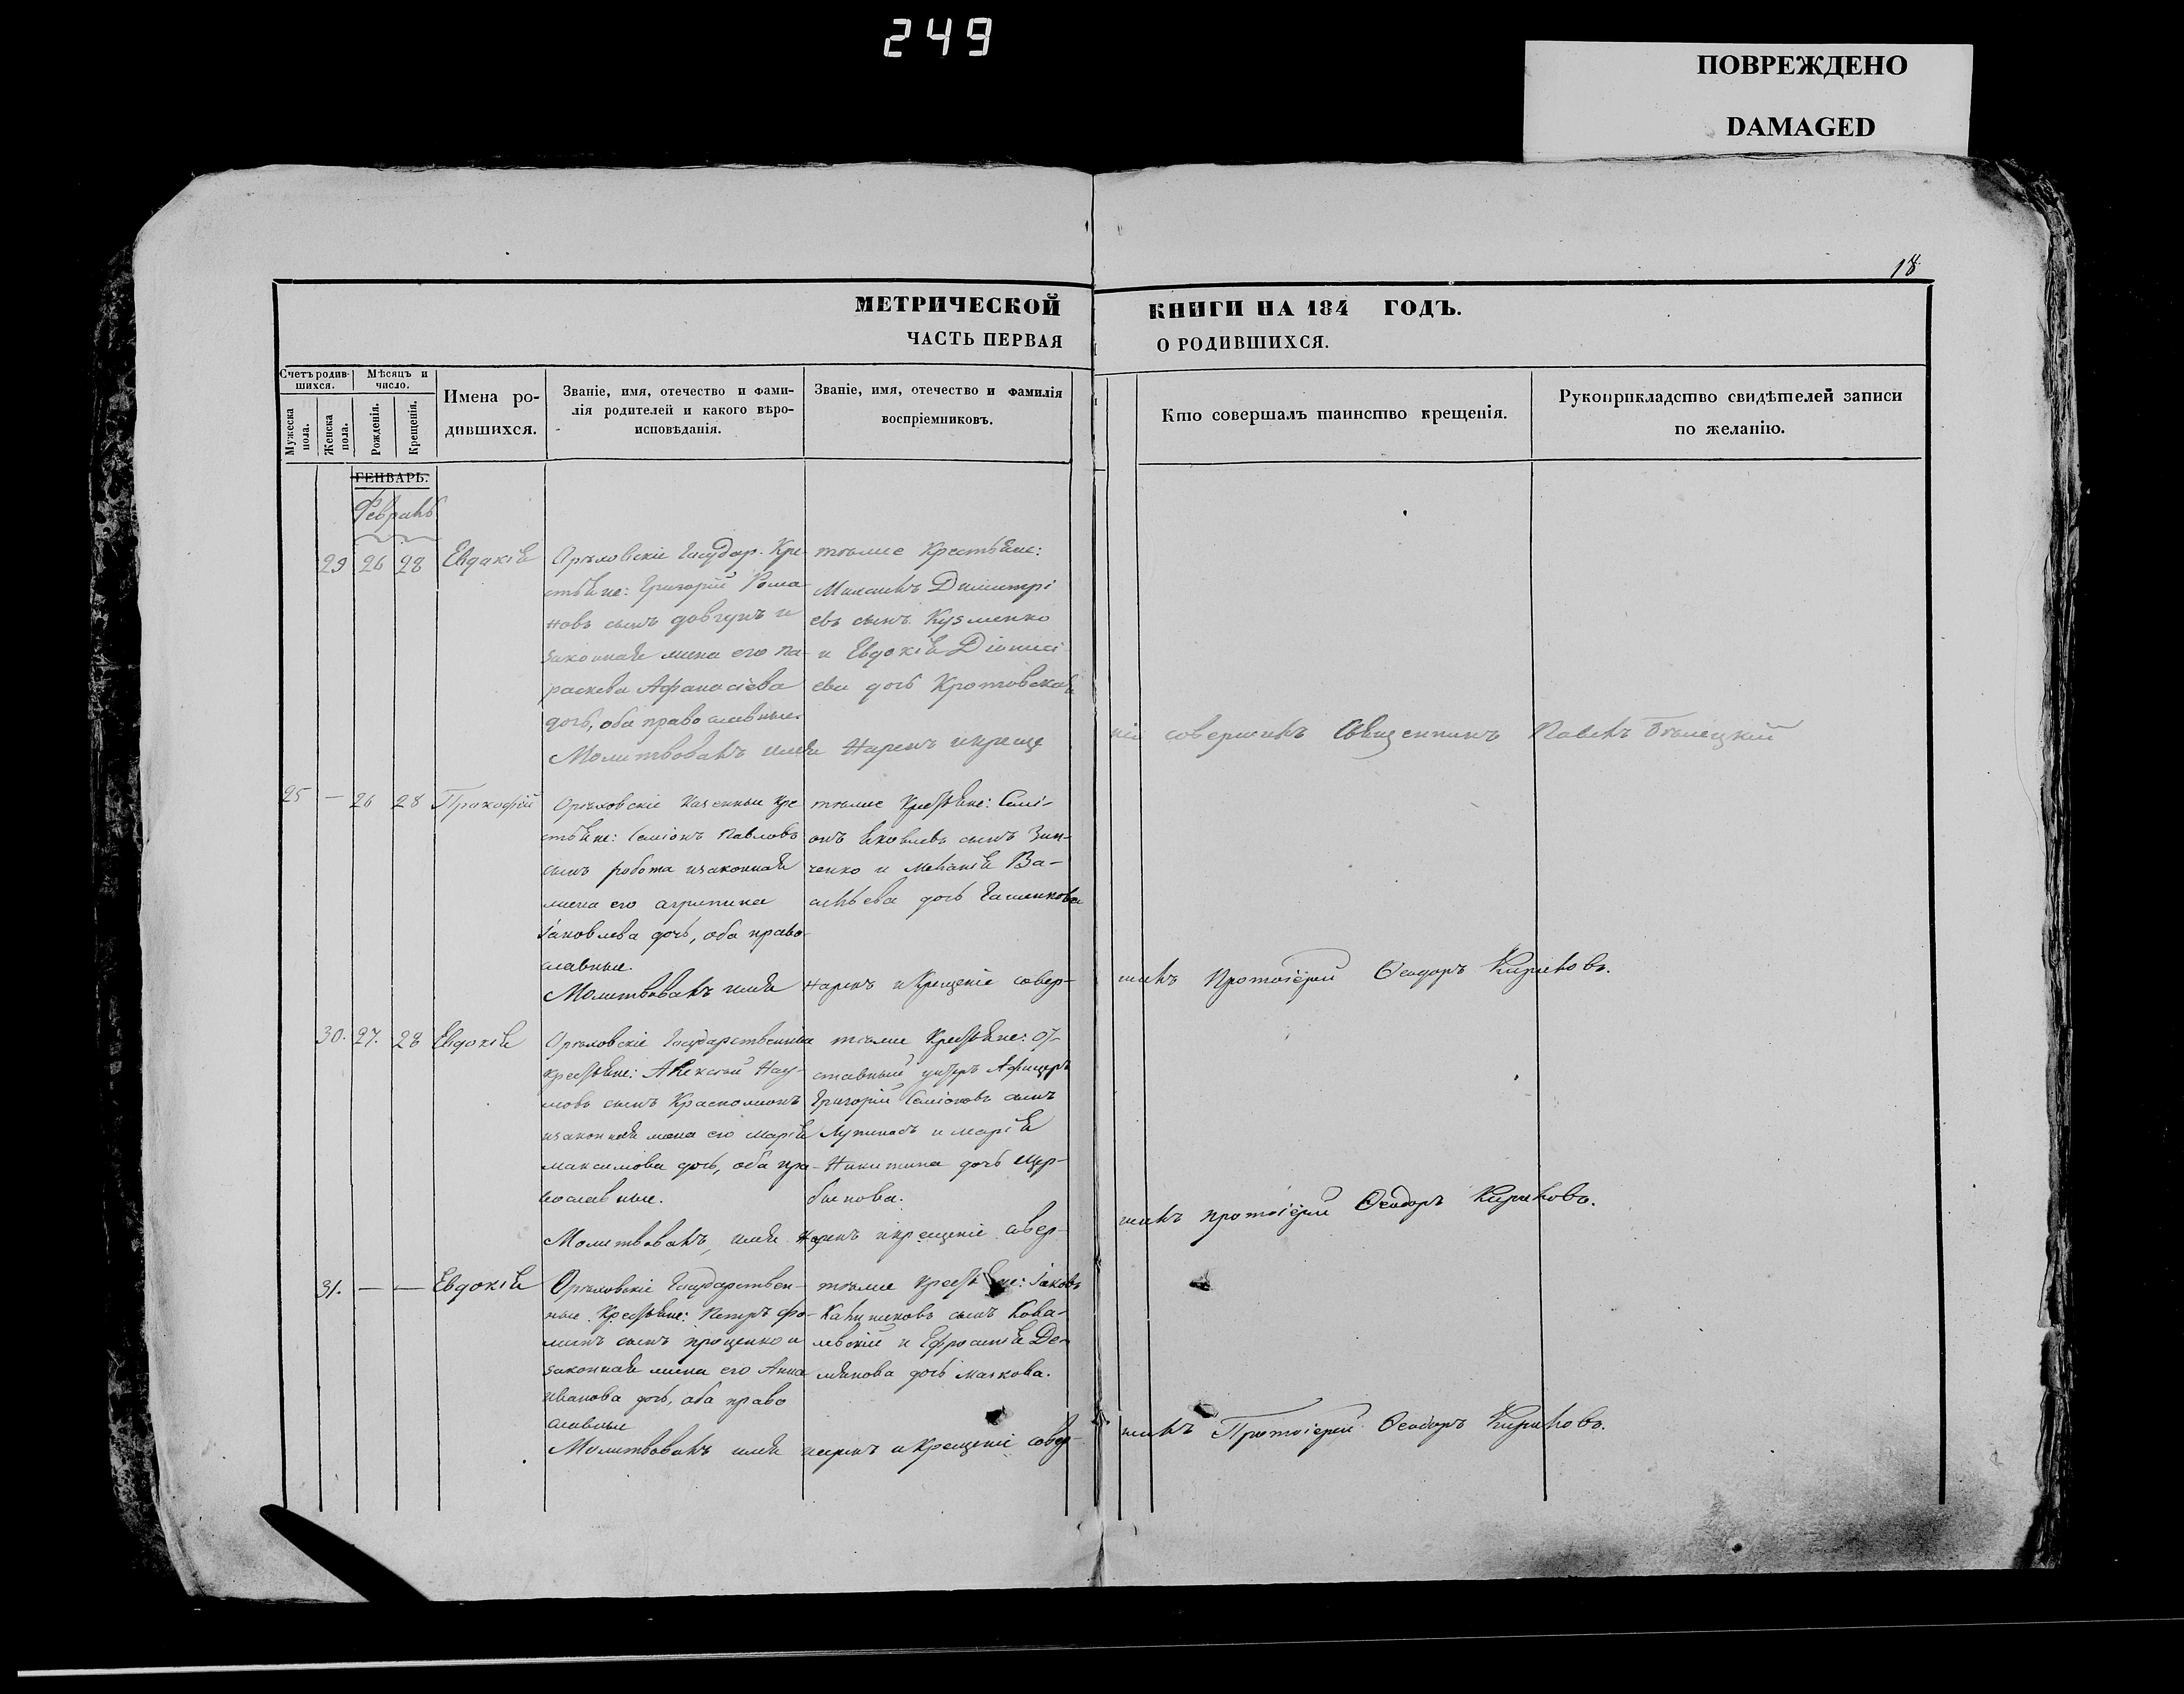 249
ПОВРЕЖДЕНО
DAMAGED
18
МЕТРИЧЕСКОЙ КНИГИ НА 184 ГОДЪ.
ЧАСТЬ ПЕРВАЯ О РОДИВШИХСЯ.
Счетъ родившихся.
Мужеска пола.
Женска пола.
Мѣсяцъ и число.
Рожденія.
Крещенія.
Имена родившихся.
Званіе, имя, отечество и фамилія родителей и какого вѣроисповѣданія.
Званіе, имя, отечество и фамилія воспріемниковъ.
Кто совершалъ таинство крещенія.
Рукоприкладство свидѣтелей записи по желанію.
ГЕНВАРЬ.
Февраль
29 26 28 Евдокія
Орѣховскіе Государ. Кре-
стьяне: Григорій Рома
новъ сынъ довгунъ и
законная жена его Па-
раскева Афанасіева
дочь, оба православные.
тѣлие Крестьяне:
Михаилъ Димитрі
евъ сынъ Кузменко
и Евдокія Діонисі
ева дочь Кротовская
Молитвовалъ имя Нарекъ и креще
ніе совершилъ Священникъ Павелъ Бѣлецкій
25 — 26 28 Прокофій
Орѣховскіе Казенные Кре
стьяне: Семіонъ Павловъ
сынъ робота и законная
жена его агрипина
Іаковлева дочь, оба право-
славные.
тѣлие Крестьяне: Семі-
онъ Яковлевъ сынъ Зин-
ченко и Меланія Ва-
сильева дочь
Молитвовалъ имя Нарекъ и Крещеніе совер-
шилъ Протоіерей Ѳеодоръ Кириловъ.
30. 27. 28 Евдокія
Орѣховскіе Государственные
крестьяне: Алексѣй Нау-
мовъ сынъ
и законная жена его Марія
Максимова дочь, оба пра-
вославные.
тѣлие Крестьяне: От-
ставный унтеръ Афицеръ
Григорій Семіоновъ сынъ
и Марія
Никитина дочь Щер-
бынова.
Молитвовалъ, имя Нарекъ и крещеніе совер-
шилъ протоіерей Ѳеодоръ Кириловъ.
31. — — Евдокія
Орѣховскіе Государствен-
ные Крестьяне: Петръ Фо-
минъ сынъ проценко и
законная жена его Анна
Иванова дочь, оба право
славные
тѣлие Крестьяне: Іаковъ
Калиниковъ сынъ Кова-
левскій и Ефросинія Де-
мянова дочь Мачкова.
Молитвовалъ имя нарекъ и Крещеніе совер-
шилъ Протоіерей Ѳеодоръ Кириловъ.